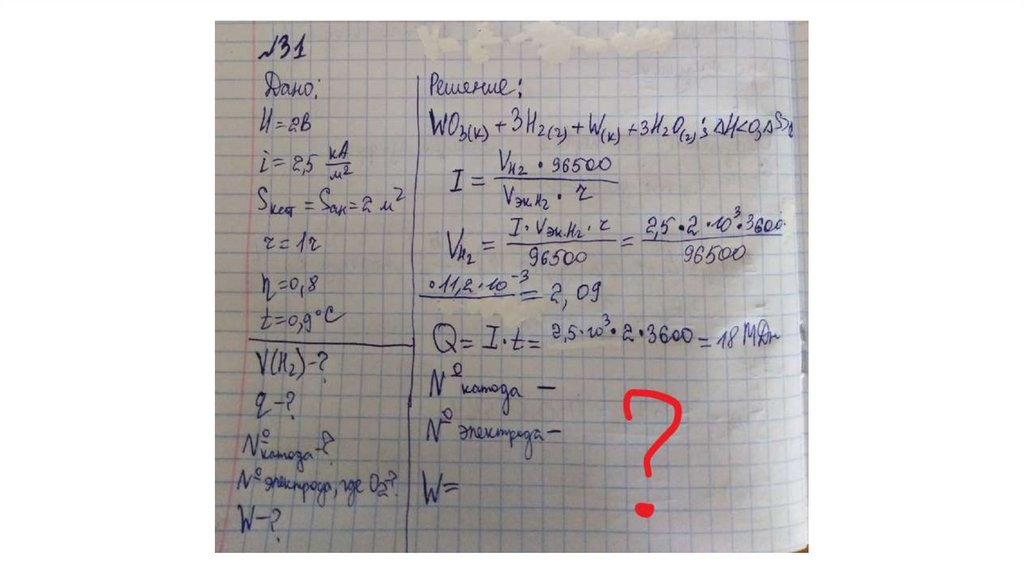 №31
Дано:
U=2В
i=2,5 кА/м²
Sкат = Sан = 2 м²
τ=1ч
η=0,8
t=0,9°C
V(H₂)-?
q-?
N⁰ катода-?
N⁰ электрода, где O₂-?
W-?
Решение:
WO₃(к) + 3H₂(г) + W(к) + 3H₂O(г); ΔH<0, ΔS>0
I = V_H₂ · 96500 / Vэк.H₂ · τ
V_H₂ = I · Vэк.H₂ · τ / 96500 = 2,5 · 2 · 10³ · 3600 / 96500
· 11,2 · 10⁻³ = 2,09
Q = I · t = 2,5 · 10³ · 2 · 3600 = 18 МДж
N⁰ катода —
N⁰ электрода —
W=
?